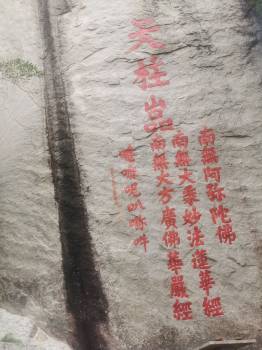 天柱嵓
南無阿弥陀佛
南無大乘妙法蓮華經
南無大方廣佛華嚴經
唵嘛呢叭咪吽